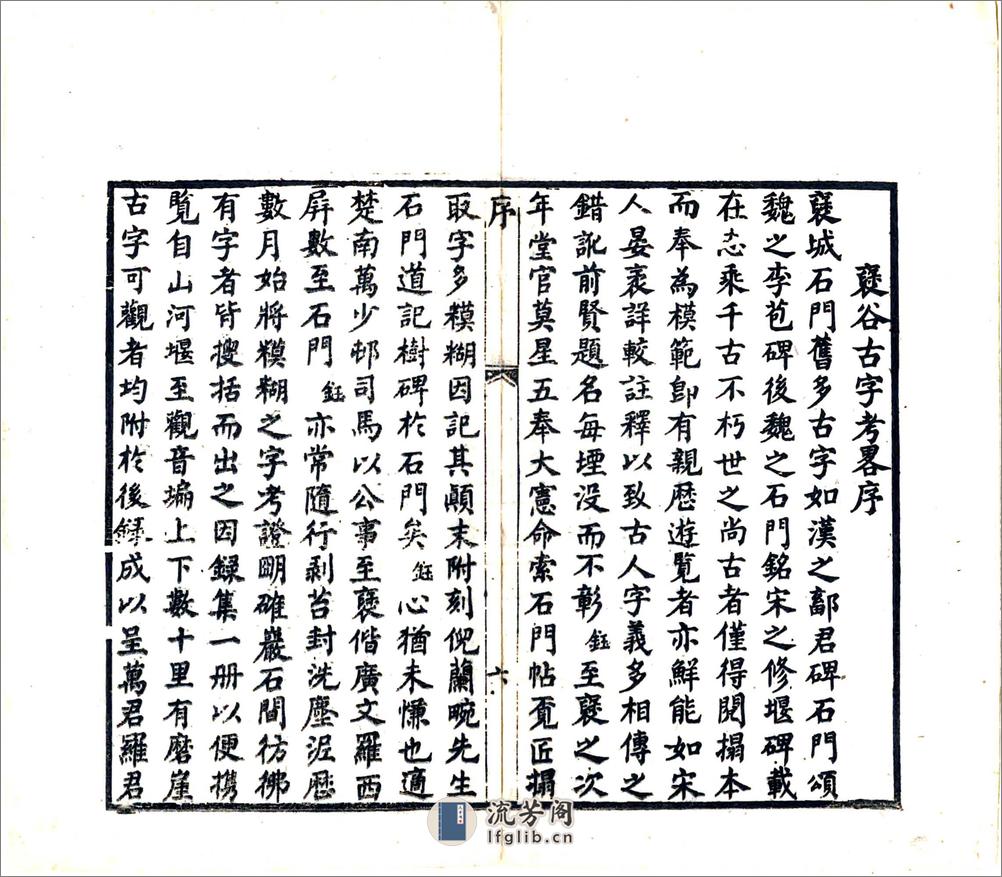 襃谷古字考畧序
襃城石門舊多古字如漢之鄐君碑石門頌
魏之李苞碑後魏之石門銘宋之修堰碑載
在志乘千古不朽世之尚古者僅得閱搨本
而奉為模範卽有親歷遊覽者亦鮮能如宋
人晏袤詳較註釋以致古人字義多相傳之
錯訛前賢題名每堙没而不彰鈺至襃之次
年堂官莫星五奉大憲命索石門帖覔匠搨
序
六
取字多糢糊因記其顛末附刻倪蘭畹先生
石門道記樹碑於石門矣鈺心猶未慊也適
楚南萬少邨司馬以公事至襃偕廣文羅西
屏數至石門鈺亦常隨行剥苔封洗塵泥歷
數月始將糢糊之字考證眀確巖石間彷彿
有字者皆搜括而出之因録集一册以便携
覽自山河堰至觀音碥上下數十里有磨崖
古字可觀者均附於後録成以呈萬君羅君
流芳阁
lfglib.cn